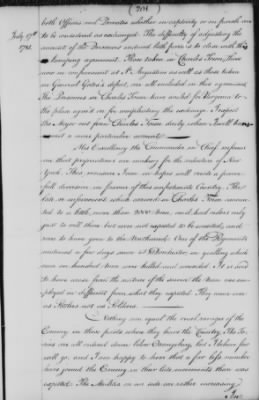 (204)
July 17th
1781.
both Officers and Privates whether in captivity or on parole are
to be considered as exchanged. The difficulty of adjusting the
amount of the Prisoners induced both parties to close with this
lumping agreement. Those taken in Charles Town, those
now in confinement at St Augustine as well as those taken
in General Gates's defeat, are all included in this agreement.
The Prisoners in Charles Town have sailed for Virginia to
the place agreed on for completing the exchange. I expect
the Major out from Charles Town
a more particular account.
His Excellency the Commander in Chief informs
me that preparations are making for the reduction of New
York. This measure I am in hopes will create a power-
full diversion in favour of this unfortunate Country. The
late reinforcement which arrived in Charles Town amoun-
ted to a little over than 2000 men, and had orders only
just to call there but were not expected to be wanted, and
were to have gone to the Northward. One of the Regiments
mutinied a few days since at Dorchester in quelling which
near one hundred men were killed and wounded. It is said
to have arisen from the nature of the service the men was em-
ployed on different from what they expected. They were
as Settlers not as Soldiers.
Nothing can equal the cruel ravages of the
Enemy in those parts where they have the Country. The To-
ries are all ordered down below Orangeburg, but I believe few
will go. and I am happy to hear that a far less number
have joined the Enemy in their late movements than was
expected. The Militia on our side are rather increasing